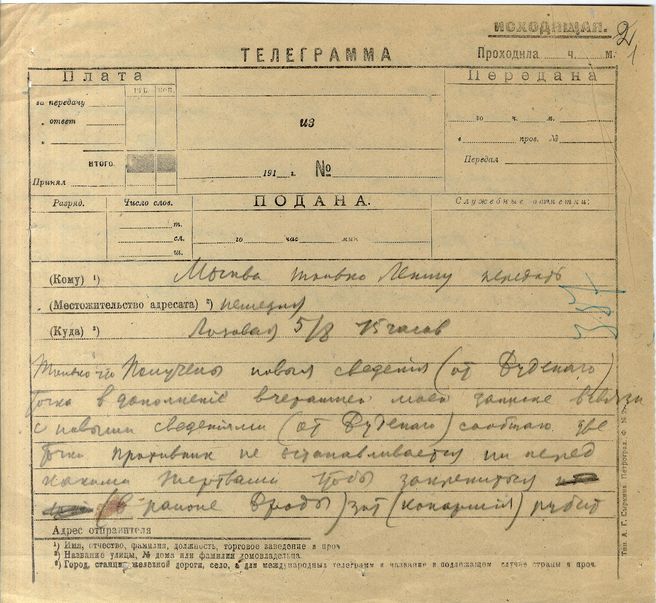 ИСХОДЯЩАЯ. 2/1
ТЕЛЕГРАММА
Проходила ч. м.
Плата
руб. коп.
за передачу
" ответ
"
ИТОГО.
Принял
из
191 г. №
Передана
го ч. м.
в пров. №
Передал
Разряд.
Число слов.
т.
сл.
ш.
ПОДАНА.
го час мин
Служебные отметки:
(Кому) ¹) Москва только Ленину передать
(Местожительство адресата) ²) немедля
(Куда) ³) Лозовая 5/8 15 часов
Только что получены новыя сведения (от Буденаго)
Точка в дополнение вчерашней моей записке в связи
с новыми сведениями (от Буденаго) сообщаю две
точки противник не останавливается ни перед
какими жертвами чтобы закрепиться
(в районе Броды) зпт (конармия) рубит
Адрес отправителя
¹) Имя, отчество, фамилия, должность, торговое заведение и проч
²) Название улицы, № дома или фамилия домовладельца.
³) Город, станция железной дороги, село, а для международных телеграмм и название в подлежащем случае страны и проч.
Тип. А. Г. Сыркина Петроград.